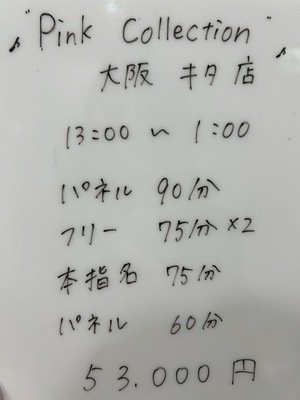 "Pink Collection"
大阪 キタ 店
13:00 〜 1:00
パネル 90分
フリー 75分×2
本指名 75分
パネル 60分
53.000 円